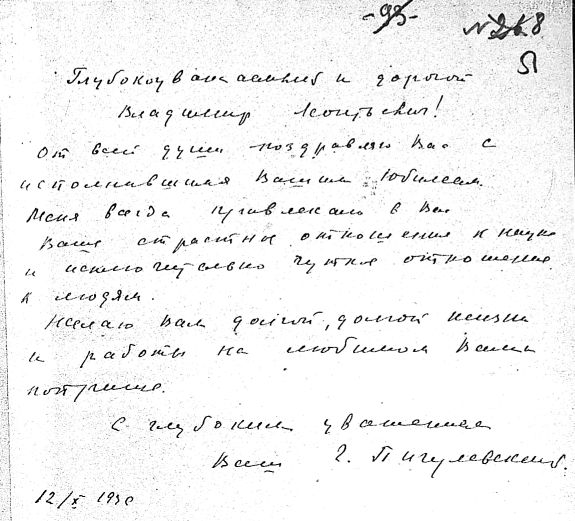 Глубокоуважаемый и дорогой
Владимир Леонтьевич!
От всей души поздравляю Вас с
исполнившимся Вашим юбилеем.
Меня всегда привлекало в Вас
Ваше страстное отношение к науке
и исключительно чуткое отношение
к людям.
Желаю Вам долгой, долгой жизни
и работы на любимом Вами
поприще.
С глубоким уважением
Ваш Г. Пигулевский.
12/X